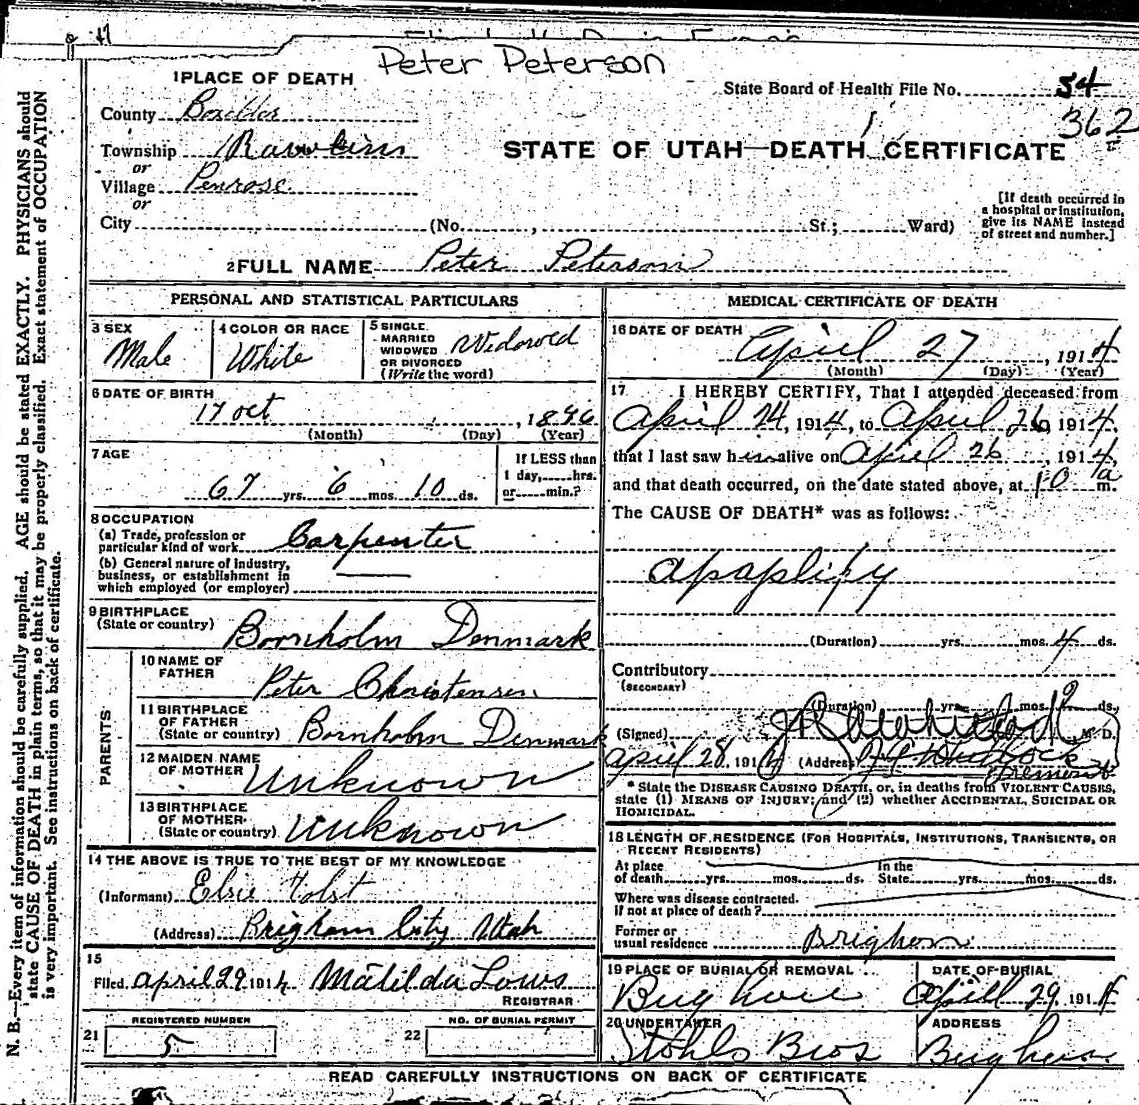 Peter Peterson
1 PLACE OF DEATH
State Board of Health File No. 54
362
County Boxelder
Township
or
STATE OF UTAH—DEATH CERTIFICATE
Village Penrose
or
City (No. , St.; Ward)
[If death occurred in a hospital or institution, give its NAME instead of street and number.]
2 FULL NAME Peter Peterson
PERSONAL AND STATISTICAL PARTICULARS
3 SEX
Male
4 COLOR OR RACE
White
5 SINGLE MARRIED WIDOWED OR DIVORCED (Write the word)
Widowed
6 DATE OF BIRTH
17 Oct , 1846
(Month) (Day) (Year)
7 AGE
67 yrs. 6 mos. 10 ds.
If LESS than 1 day, hrs. or min.?
8 OCCUPATION
(a) Trade, profession or particular kind of work Carpenter
(b) General nature of industry, business, or establishment in which employed (or employer)
9 BIRTHPLACE
(State or country) Bornholm Denmark
PARENTS
10 NAME OF FATHER
Peter Christensen
11 BIRTHPLACE OF FATHER
(State or country) Bornholm Denmark
12 MAIDEN NAME OF MOTHER Unknown
13 BIRTHPLACE OF MOTHER
(State or country) Unknown
14 THE ABOVE IS TRUE TO THE BEST OF MY KNOWLEDGE
(Informant) Elsie Holst
(Address) Brigham City Utah
15
Filed April 29 1914 Matilda
REGISTRAR
21 REGISTERED NUMBER
5
22 NO. OF BURIAL PERMIT
MEDICAL CERTIFICATE OF DEATH
16 DATE OF DEATH April 27, 1914
(Month) (Day) (Year)
17 I HEREBY CERTIFY, That I attended deceased from
April 24, 1914, to April 26, 1914,
that I last saw him alive on April 26, 1914,
and that death occurred, on the date stated above, at 10 a m.
The CAUSE OF DEATH* was as follows:
apaplixy
(Duration) yrs. mos. 4 ds.
Contributory
(SECONDARY)
(Duration) yrs. mos. ds.
(Signed) M.D.
April 28, 1914 (Address) Tremont
* State the DISEASE CAUSING DEATH, or, in deaths from VIOLENT CAUSES, state (1) MEANS OF INJURY; and (2) whether ACCIDENTAL, SUICIDAL OR HOMICIDAL.
18 LENGTH OF RESIDENCE (FOR HOSPITALS, INSTITUTIONS, TRANSIENTS, OR RECENT RESIDENTS)
At place of death yrs. mos. ds. In the State yrs. mos. ds.
Where was disease contracted, if not at place of death?
Former or usual residence Brigham
19 PLACE OF BURIAL OR REMOVAL
Brigham
DATE OF BURIAL
April 29 1914
20 UNDERTAKER
Stohls Bros
ADDRESS
Brigham
READ CAREFULLY INSTRUCTIONS ON BACK OF CERTIFICATE
N. B.—Every item of information should be carefully supplied. AGE should be stated EXACTLY. PHYSICIANS should
state CAUSE OF DEATH in plain terms, so that it may be properly classified. Exact statement of OCCUPATION
is very important. See instructions on back of certificate.